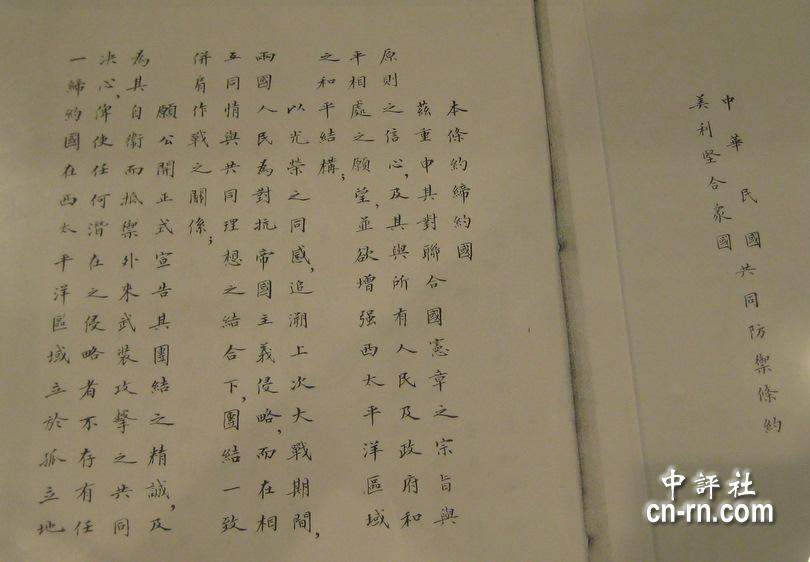 中華民國共同防禦條約
美利堅合衆國
本條約締約國
茲重申其對聯合國憲章之宗旨與
原則之信心,及其與所有人民及政府和
平相處之願望,並欲增强西太平洋區域
之和平結構;
以光榮之同感,追溯上次大戰期間,
兩國人民為對抗帝國主義侵略,而在相
互同情與共同理想之結合下,團結一致
併肩作戰之關係;
願公開正式宣告其團結之精誠,及
為其自衛而抵禦外來武裝攻擊之共同
决心,俾使任何潛在之侵略者不存有任
一締約國在西太平洋區域立於孤立地
中評社
cn-rn.com